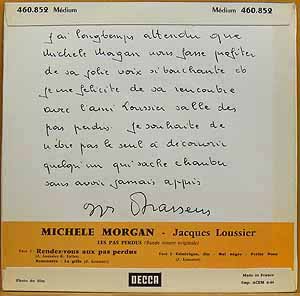 460.852 Médium
Médium 460.852
J'ai longtemps attendu que
michele Morgan nous fasse profiter
de sa jolie voix si touchante et
je me felicite de sa rencontre
avec l'ami Loussier salle des
pas perdus. Je souhaite de
n'être pas le seul à découvrir
quelqu'un qui sache chanter
sans avoir jamais appris.
Brassens
MICHELE MORGAN - Jacques Loussier
LES PAS PERDUS (Bande sonore originale)
Face 1 : Rendez-vous aux pas perdus
Face 2 :
Rencontre - La grille (J. Loussier)
(J. Loussier)
Photo du film
DECCA
Made in France